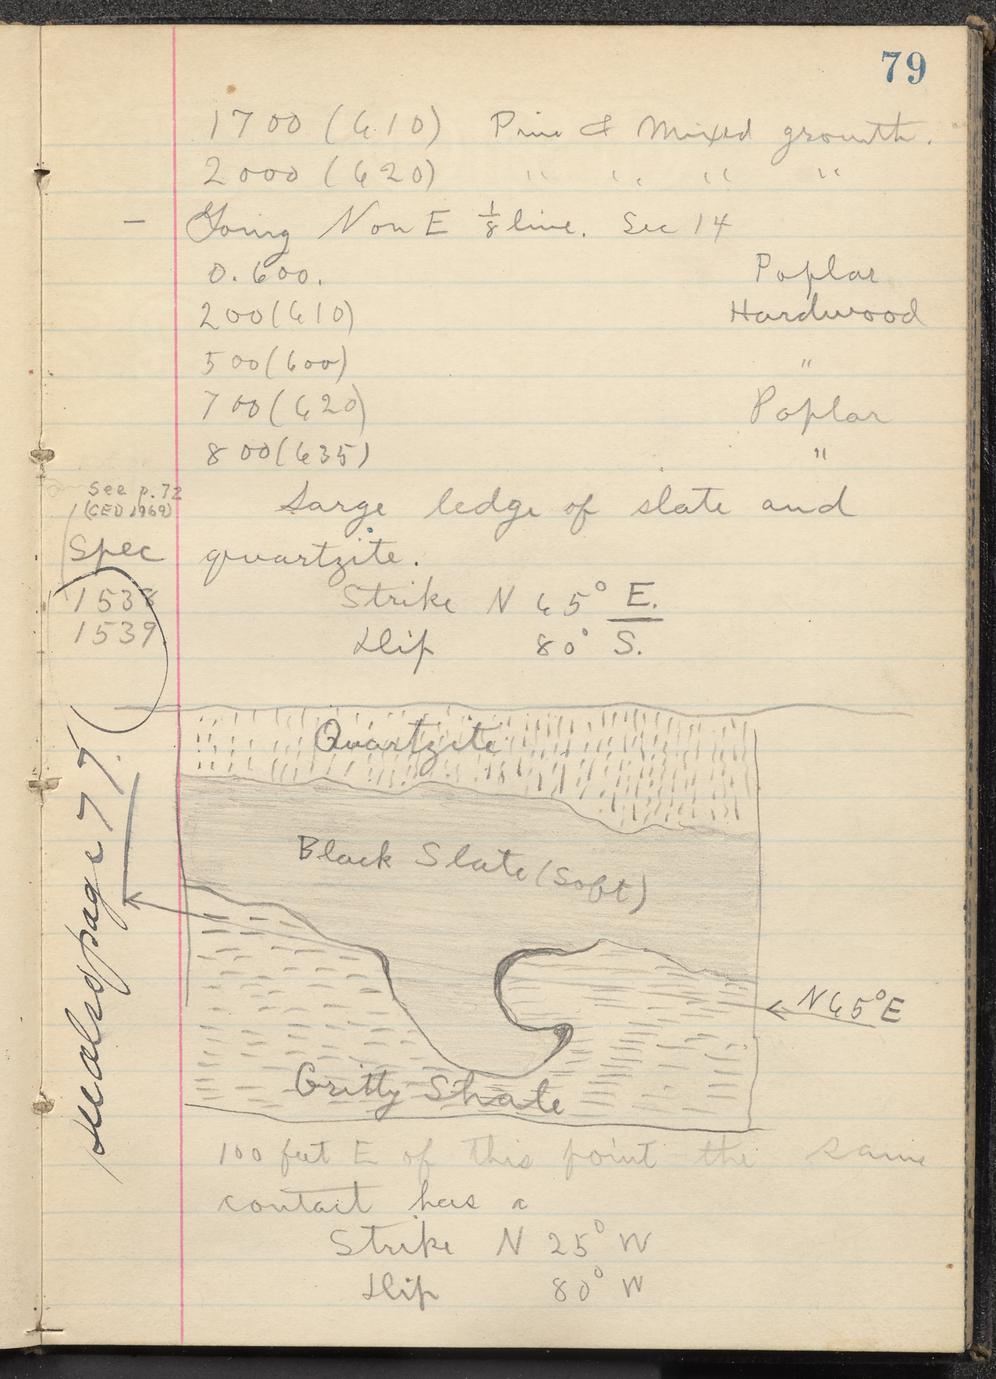 79
1700 (610) Pine & Mixed growth.
2000 (620) " " " "
- Going N on E 1/8 line. Sec 14
0.600. Poplar
200 (610) Hardwood
500 (600) "
700 (620) Poplar
800 (635) "
See p. 72
(CEO 1969)
Large ledge of slate and
Spec quartzite.
1538 Strike N 65° E.
1539 Dip 80° S.
Quartzite
Black Slate (Soft)
see also page 77.
N65°E
Gritty Shale
100 feet E of this point the same
contact has a
Strike N 25° W
Dip 80° W